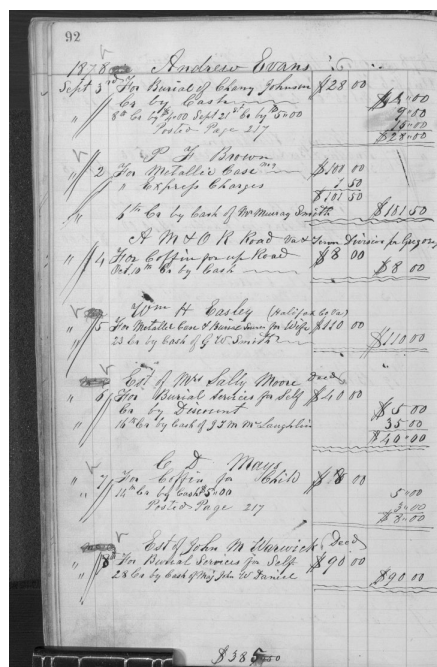 92
1878 Andrew Evans
Sept 3rd For Burial of Chany Johnson $28 00
Cr by Cash $4"00
8th Cr by $4"00 Sept 21st Cr by $5"00 9"00
Posted Page 217 15"00
$28"00
P F Brown
" 2 For Metallic Case $100 00
" Express Charges 1 50
$101 50
" 6th Cr by Cash of Murray Smith $101 50
A M & O R Road Division
" 4 For Coffin for Road $8 00
" Oct 10th Cr by Cash $8 00
Wm H Easley (Halifax Co Va)
" 5 For Metallic Case & Hearse for Wife $110 00
" 23 Cr by Cash of G W Smith $110 00
Est of Mrs Sally Moore Decd
" 6 For Burial Services for Self $40 00
Cr by Discount $5 00
" 16th Cr by Cash of J T M McLaughlin 35 00
$40"00
C D Mays
" 7 For Coffin for Child $8 00
" 14th Cr by Cash $5"00 5"00
Posted Page 217 3"00
$8"00
Est of John M Warwick (Decd)
" 8th For Burial Services for Self $90 00
" 28 Cr by Cash of Maj John W Daniel $90 00
$385